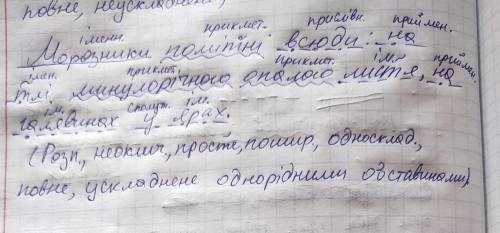 повне, неускладнене
іменн. прикмет. прислівн. приймен.
Морозники помітні всюди: на
імен. прикмет. прикмет. ім. приймен.
тлі минулорічного опалого листя, на
ім. сполуч. ім.
галявинах у ярах.
(Розп., неоклич., просте, пошир., односклад.,
повне, ускладнене однорідними обставинами).